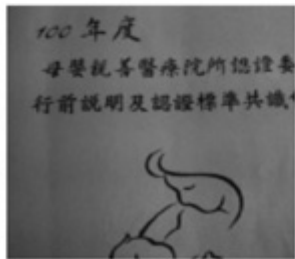 100 年度
母嬰親善醫療院所認證委
行前說明及認證標準共識